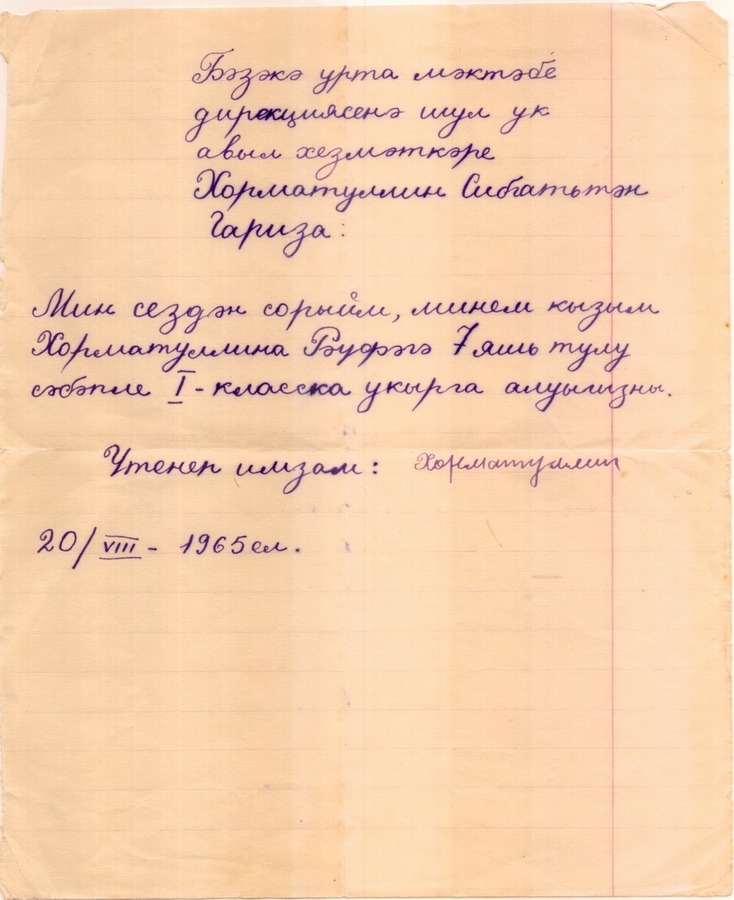 Бәзәкә урта мәктәбе
дирекциясенә шул ук
авыл хезмәткәре
Хорматуллин Сибгатьтән
Гариза:
Мин сездән сорыйм, минем кызым
Хорматуллина Рәуфәгә 7 яшь тулу
сәбәпле I - класска укырга алуыгызны.
Үтенеп имзам: Хорматуллин
20/VIII - 1965 ел.